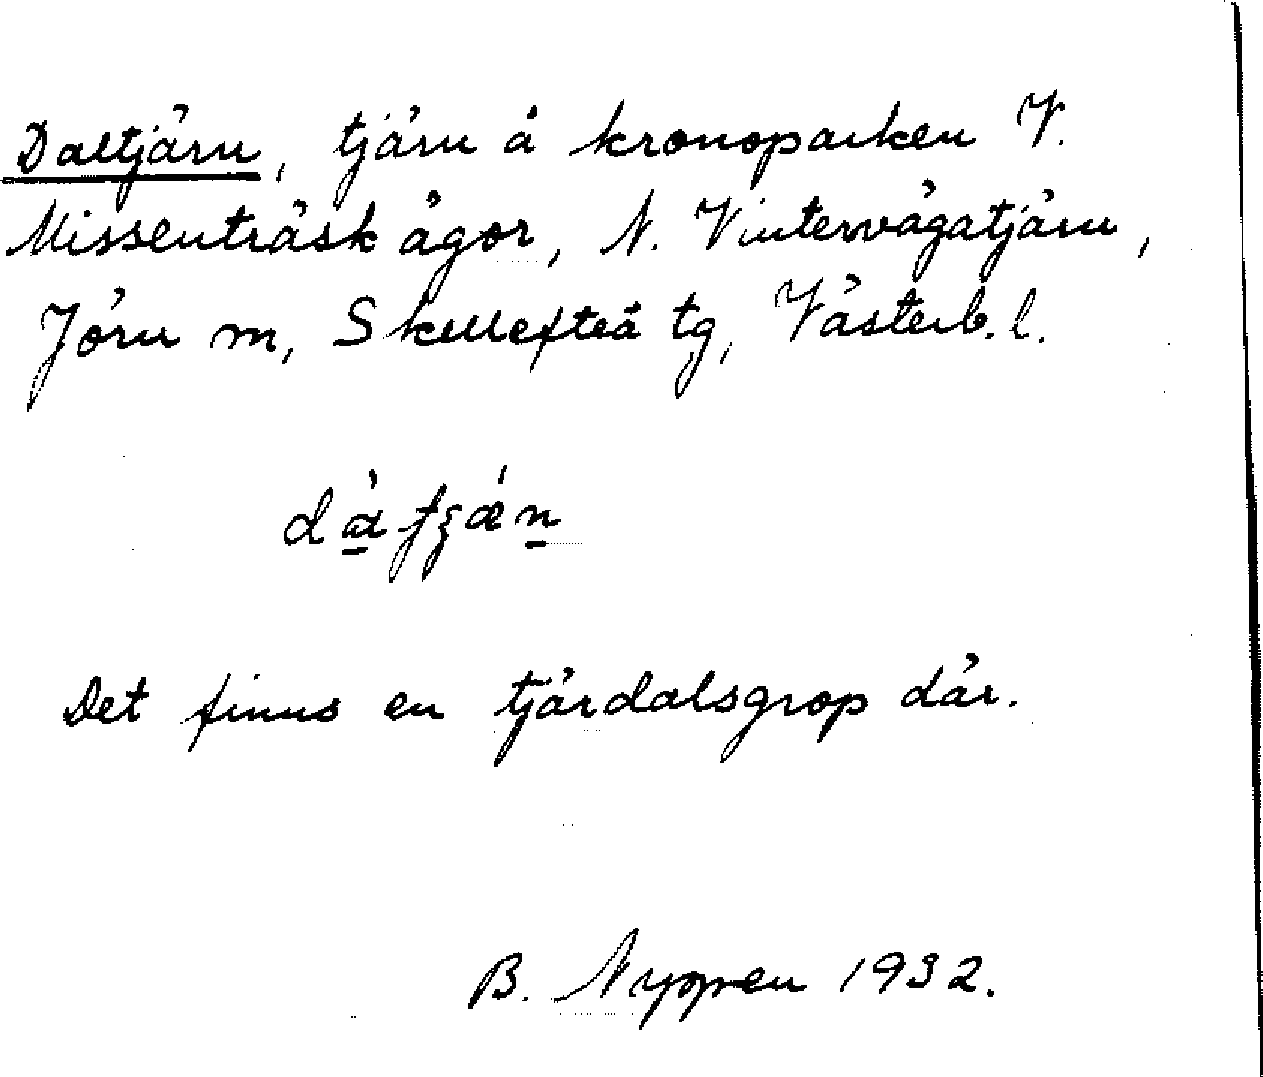 Daltjärn, tjärn å kronoparken V.
Missenträsk ägor, N. Vintervägatjärn,
Jörn m, Skellefteå tg, Västerb. l.
Det finns en tjärdalsgrop där.
B. Nyppen 1932.